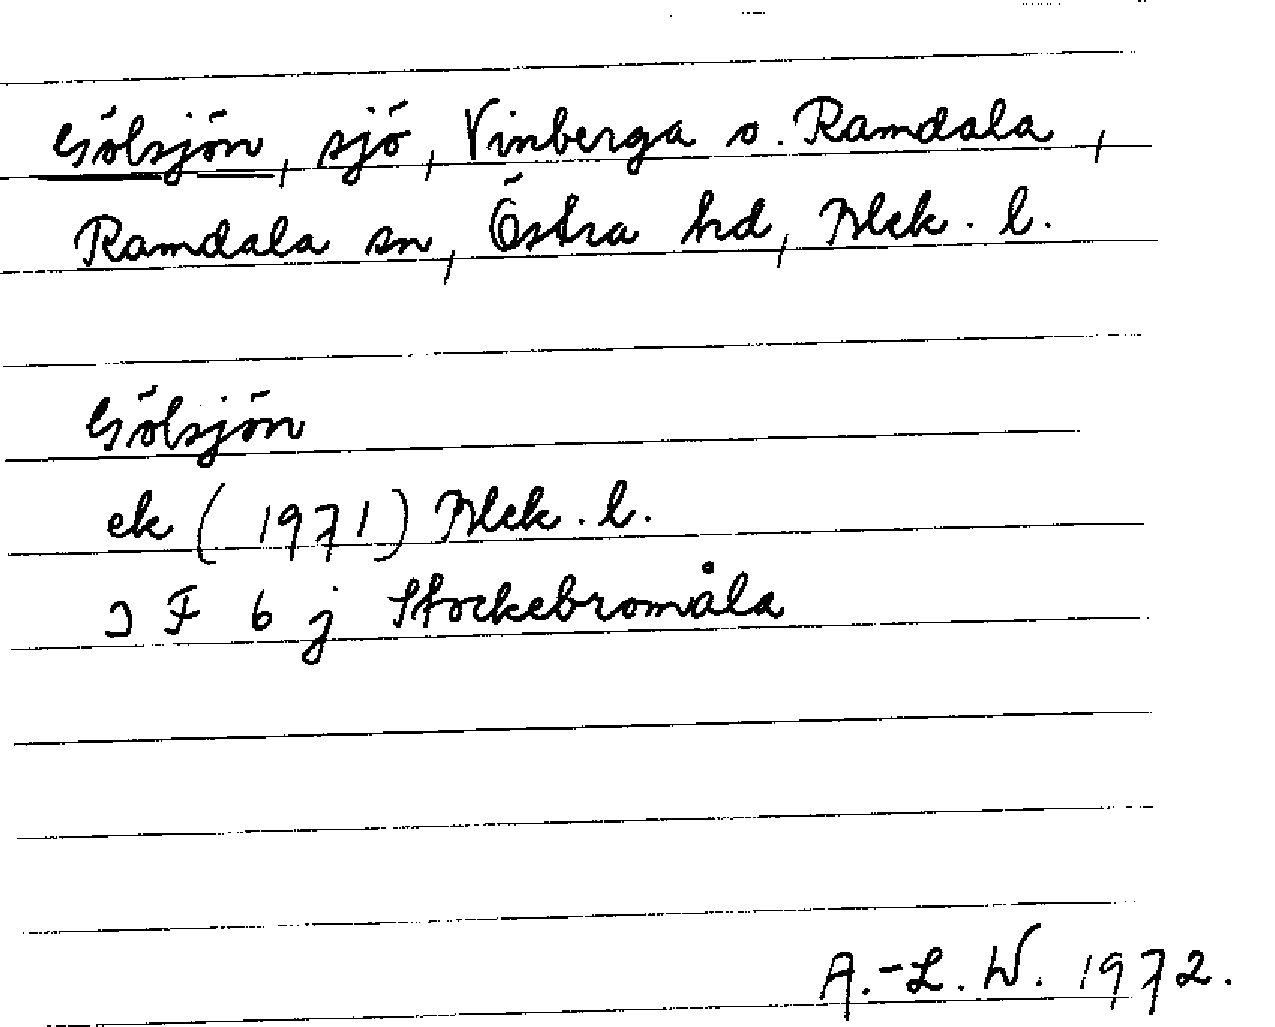 Gölsjön, sjö, Vinberga o. Ramdala,
Ramdala sn, Östra hd, Blek. l.
Gölsjön
ek (1971) Blek. l.
3 F 6 j Stockebromåla
A.-L. W. 1972.